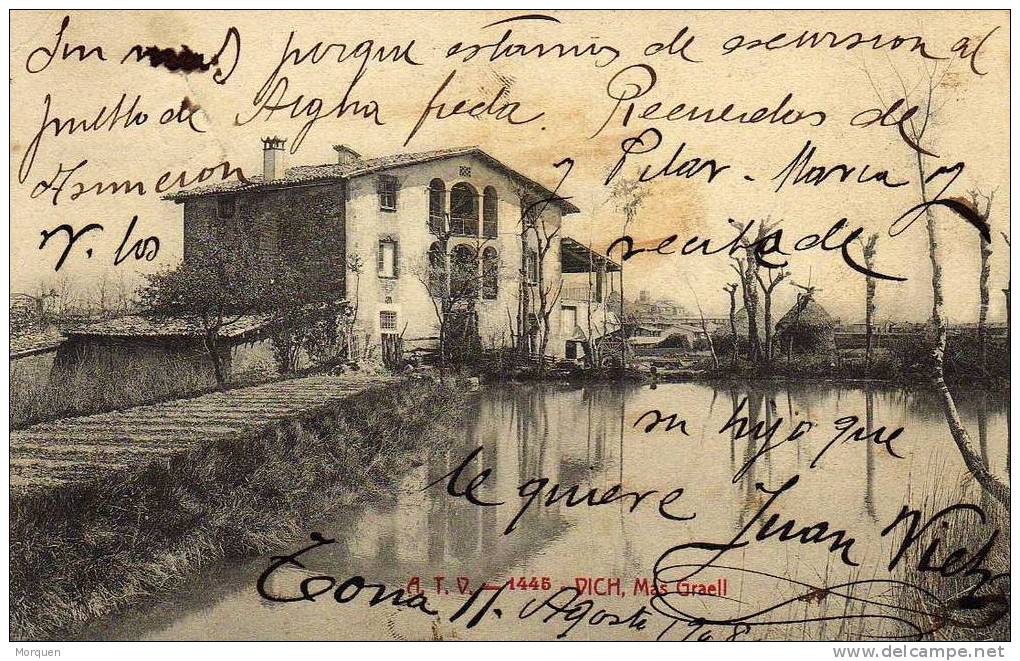 porque estamos de escursion al
pueblo de Aigha freda. Recuerdos de
Asuncion y Pilar - Maria y
V. los recibe de
su hijo que
le quiere
Juan Vich
Tona 11 Agosto 1908
A. T. V. — 1445 - VICH, Mas Graell
Morquen
delcampe.net